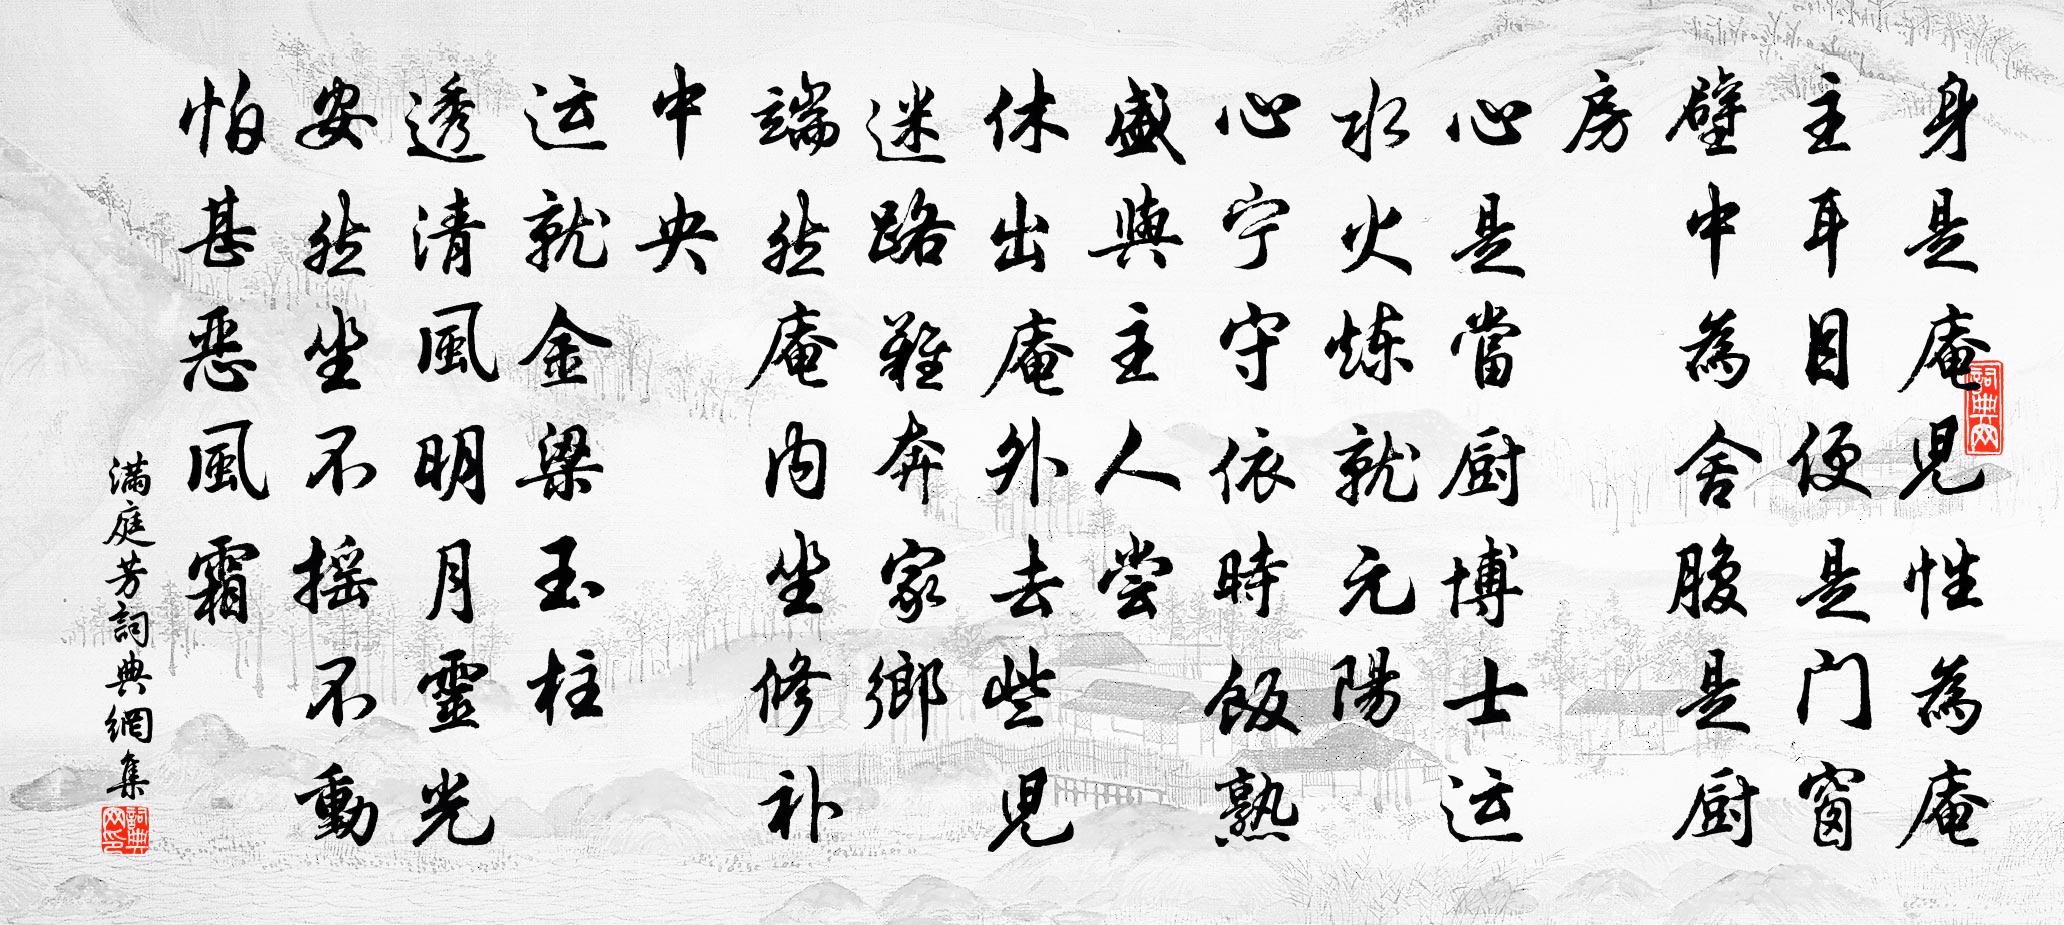 身是庵児性為庵
主耳目便是门窗
壁中為舍腹是厨
房
心是當厨博士运
水火炼就元陽
心宁守依時飯熟
盛與主人尝
休出庵外去些児
迷路難奔家鄉
端然庵内坐修补
中央
运就金梁玉柱
透清風明月靈光
安然坐不摇不動
怕甚恶風霜
满庭芳詞典網集
詞典网
詞典网印